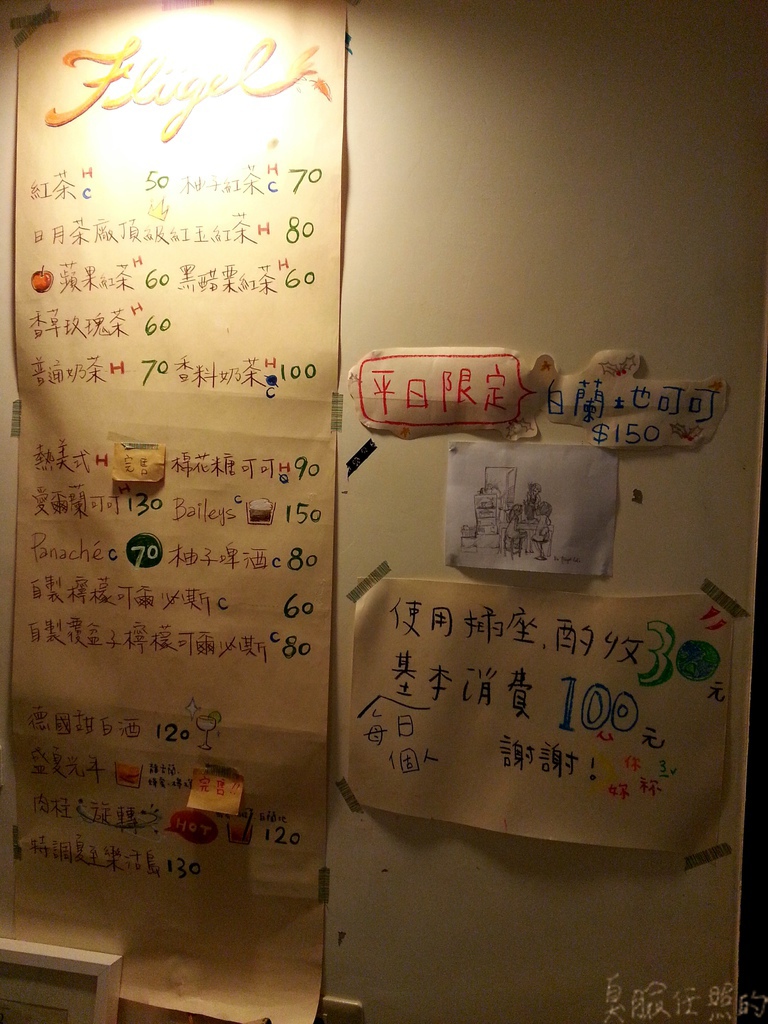 Flügel
紅茶 H C 50 柚子紅茶 H C 70
日月茶廠頂級紅玉紅茶 H 80
蘋果紅茶 H 60 黑醋栗紅茶 H 60
香草玫瑰茶 H 60
普通奶茶 H 70 香料奶茶 H C 100
熱美式 H 完售 棉花糖可可 H 90
愛爾蘭可可 H 130 Baileys C 150
Panaché C 70 柚子啤酒 C 80
自製檸檬可爾必斯 C 60
自製覆盆子檸檬可爾必斯 C 80
德國甜白酒 120
盛夏光年 完售!!
肉桂 旋轉 HOT 120
特調夏至樂活島 130
平日限定
白蘭地可可
$150
使用插座,酌收30元
基本消費100元
每日
個人
謝謝!